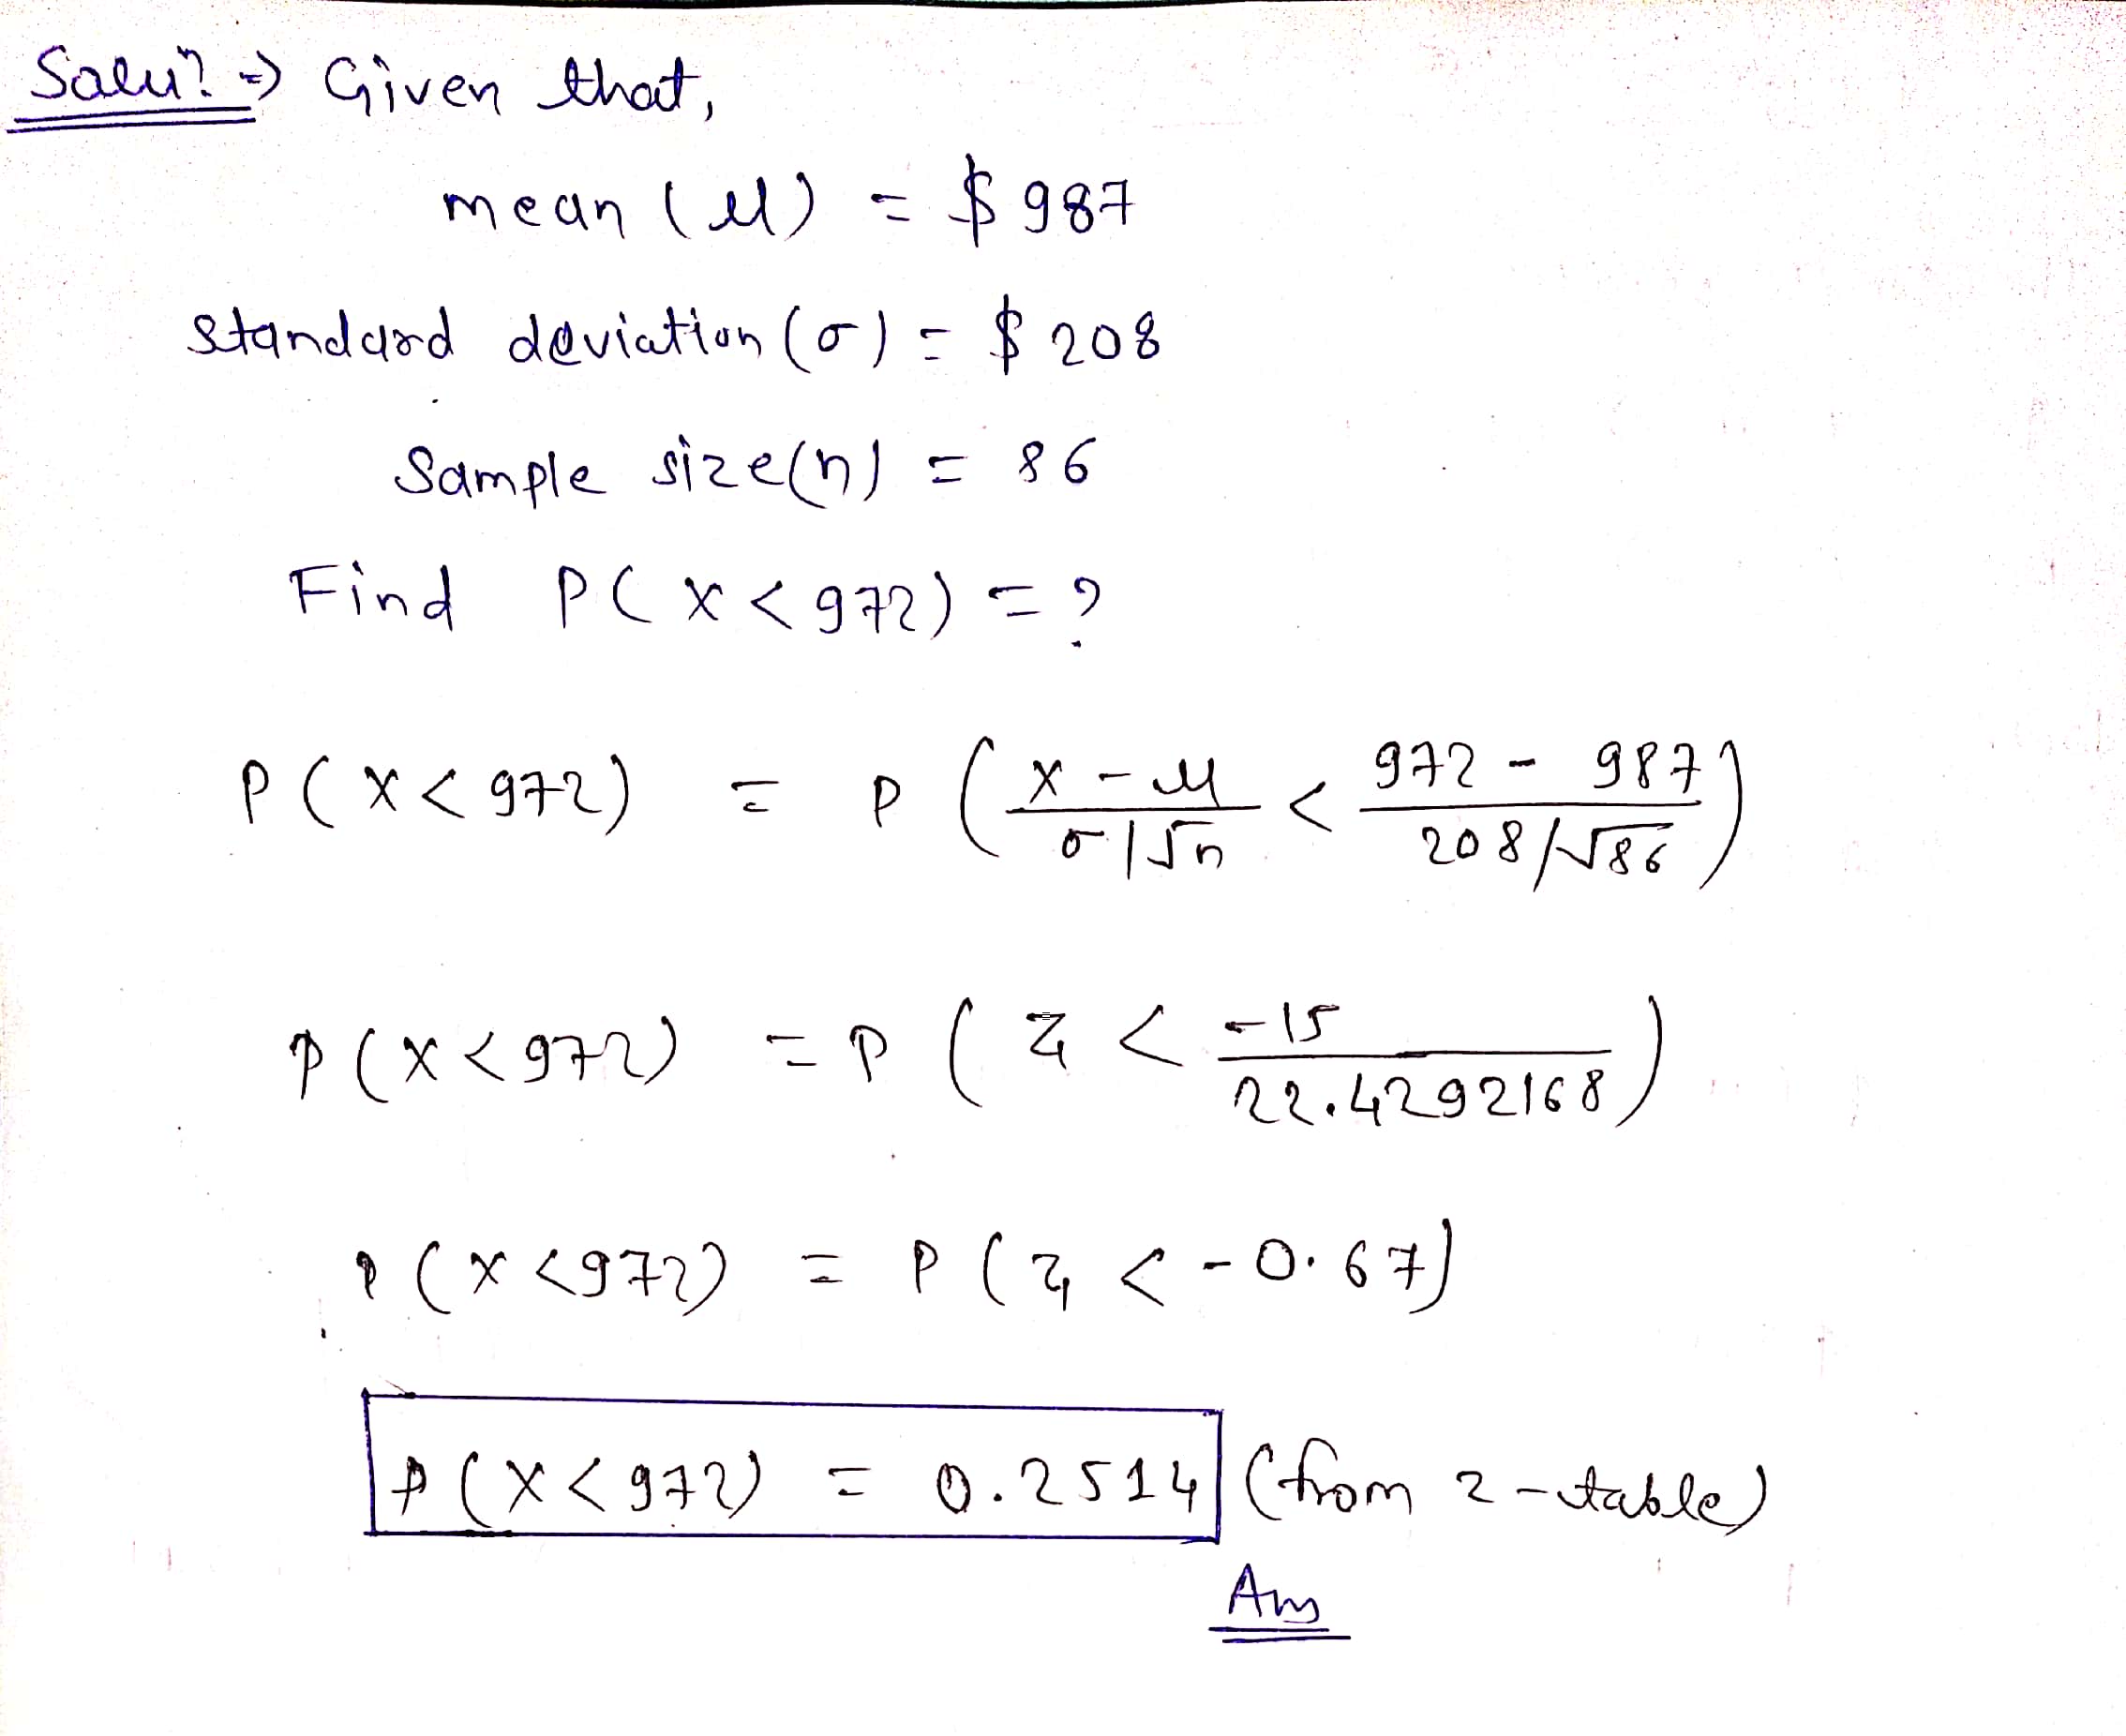 Solu? ⇒ Given that,
mean (μ) = $987
standard deviation (σ) = $208
Sample size(n) = 86
Find P(X<972) = ?
P(X<972) = P((X-μ)/(σ/√n) < (972-987)/(208/√86))
P(X<972) = P(Z < -15/22.4292168)
P(X<972) = P(Z < -0.67)
P(X<972) = 0.2514 (from z-table)
Ans